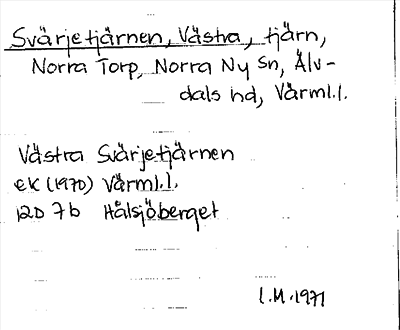 Svärjetjärnen, Västra, tjärn,
Norra Torp, Norra Ny Sn, Älv-
dals hd, Värml.l.
Västra Svärjetjärnen
ek (1970) Värml.l.
12D 7b Hålsjöberget
l.M.1971